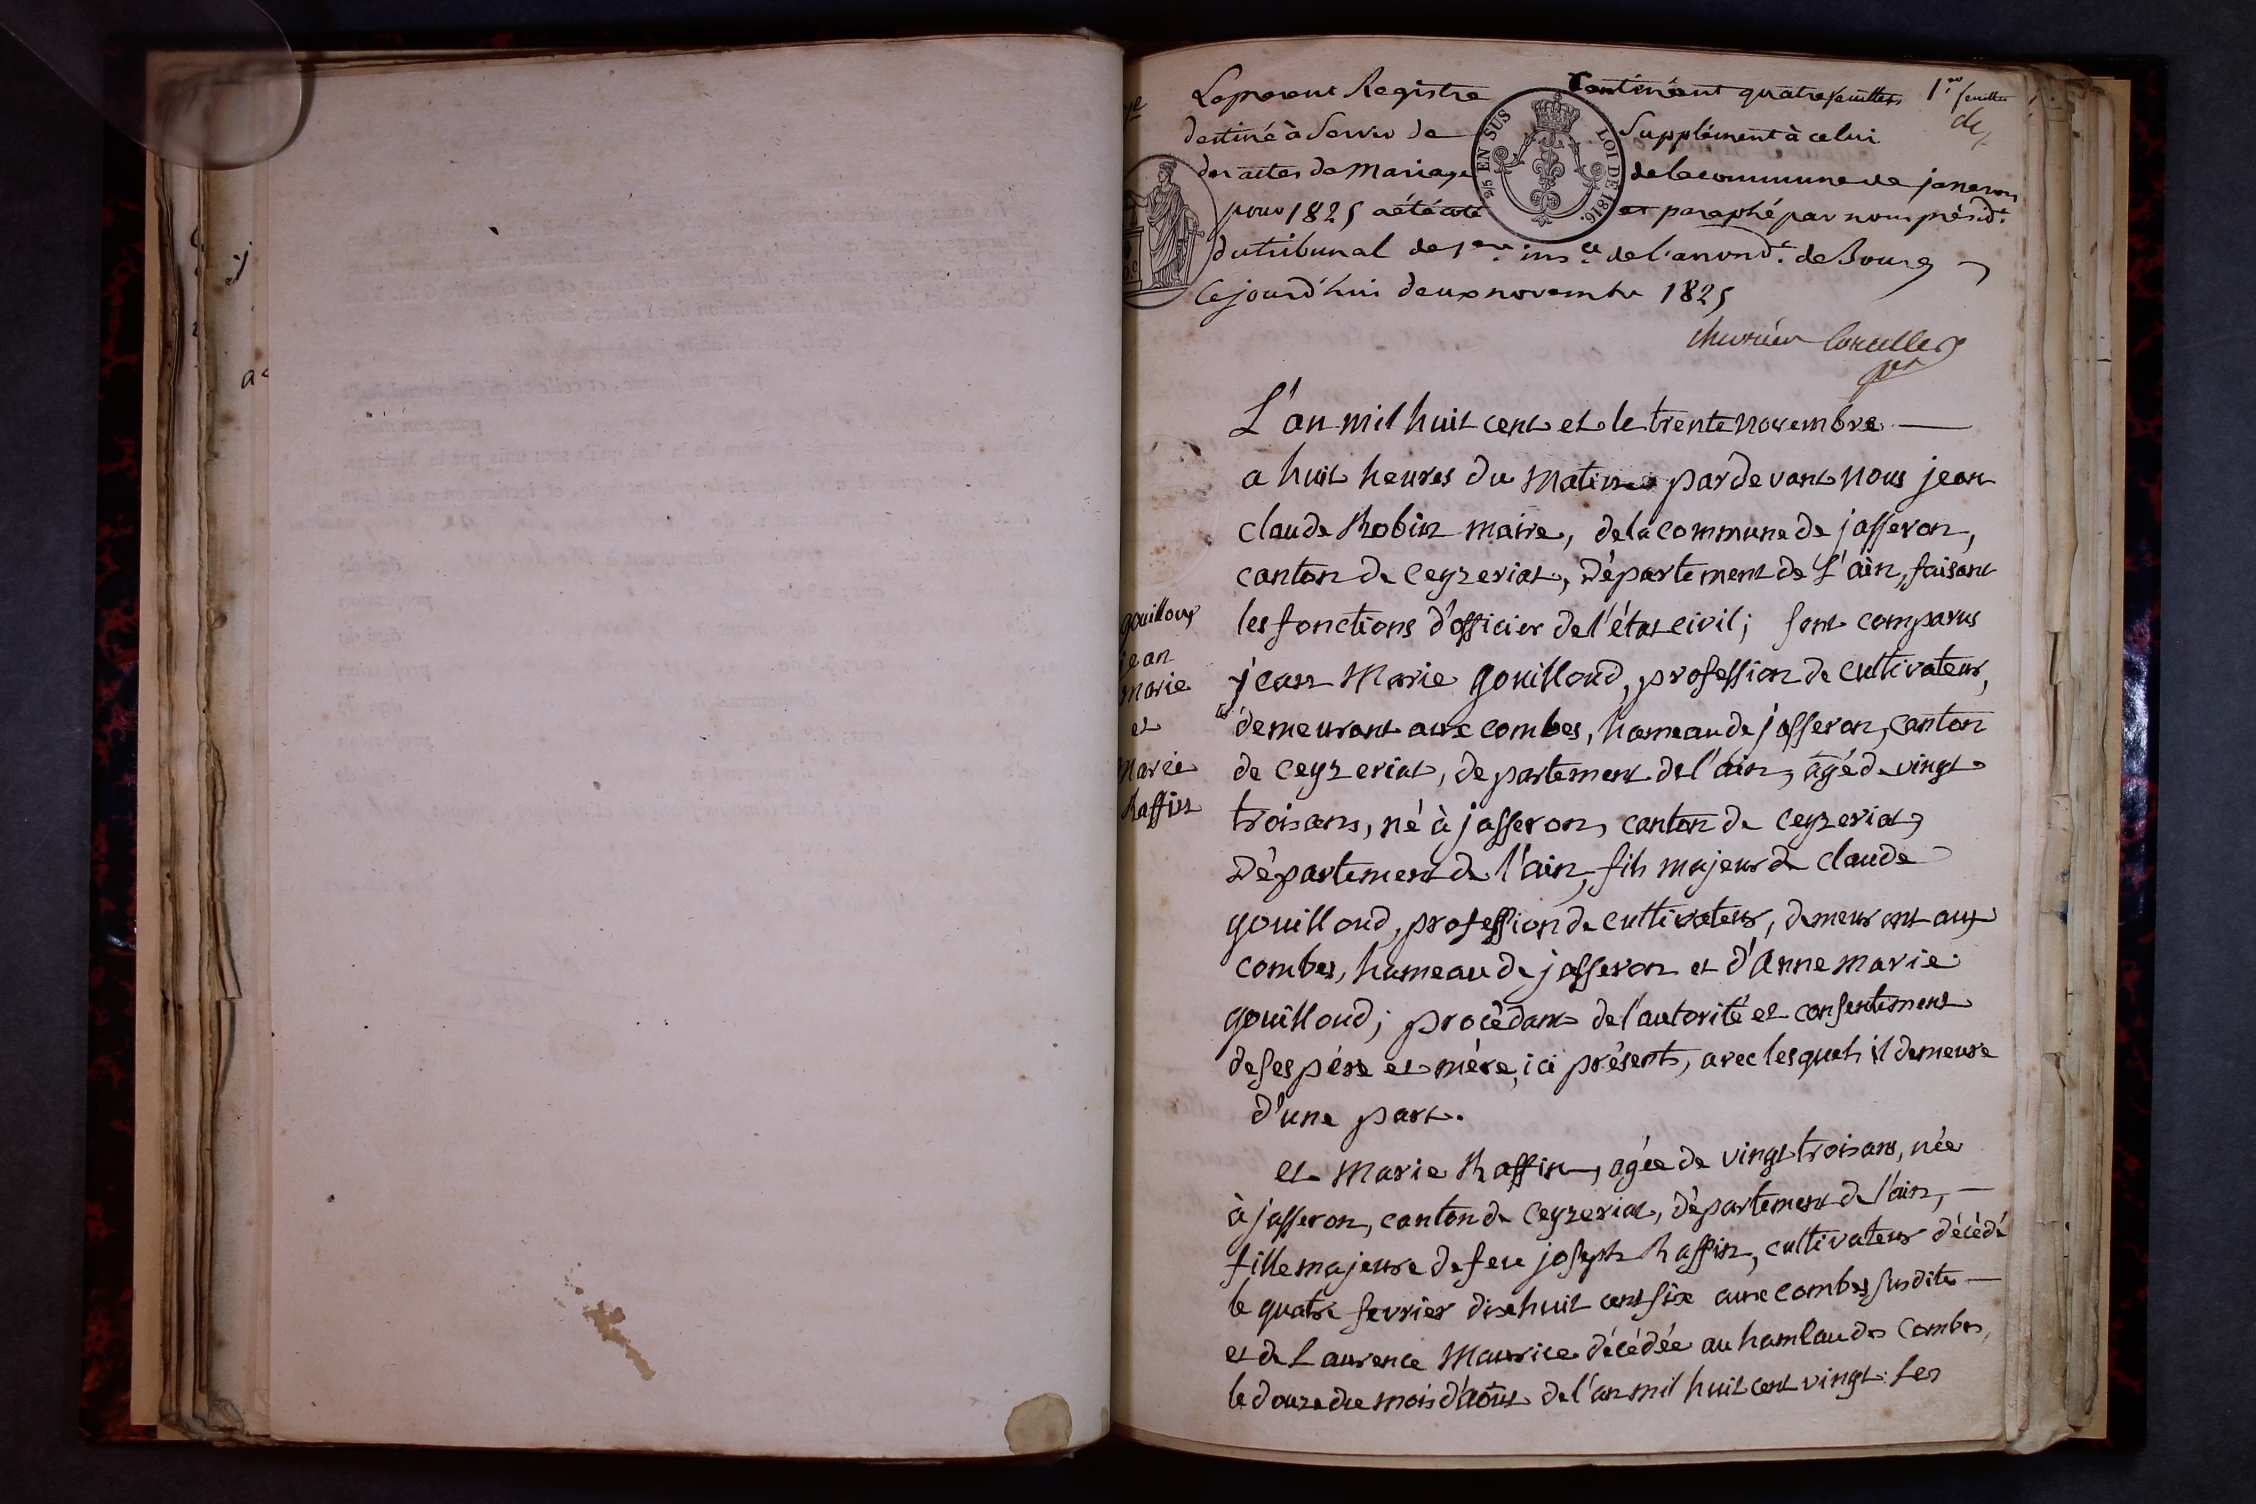 Le present Registre Contenant quatre feuillets
1er feuillet
destiné à Servir de Supplément à celui
des actes de Mariage de la commune de jasseron
pour 1825 a été coté et paraphé par nous présidt
du tribunal de 1ere insce de l'arrondt de Bourg
Ce jourd'hui deux novembre 1825
2/5 EN SUS
LOI DE 1816.
Chevrier Corcelles
L'an mil huit cent et le trente novembre
a huit heures du Matin pardevant Nous jean
claude Robin maire, de la commune de jasseron,
canton de Ceyzeriat, Département de L'ain, faisant
les fonctions d'officier de l'état civil; sont comparus
jean Marie gouilloud, profession de cultivateur,
demeurant aux combes, hameau de jasseron, canton
de ceyzeriat, departement de l'ain, âgé de vingt
trois ans, né à jasseron, canton de ceyzeriat,
Département de l'ain, fils majeur de claude
gouilloud, profession de cultivateur, demeurant aux
combes, hameau de jasseron et d'Anne marie
gouilloud; procèdant de l'autorité et consentement
de ses père et mère, ici présents, avec lesquels il demeure
d'une part.
et Marie Raffin, agée de vingt trois ans, née
à jasseron, canton de Ceyzeriat, Département de l'ain,
fille majeure de feu joseph Raffin, cultivateur décédé
le quatre fevrier dix huit cent six aux combes susdites
et de Laurence Maurice décédée au hamlau des Combes,
le douze du mois d'août de l'an mil huit cent vingt. Les
gouilloux
jean
marie
et
Marie
Raffin